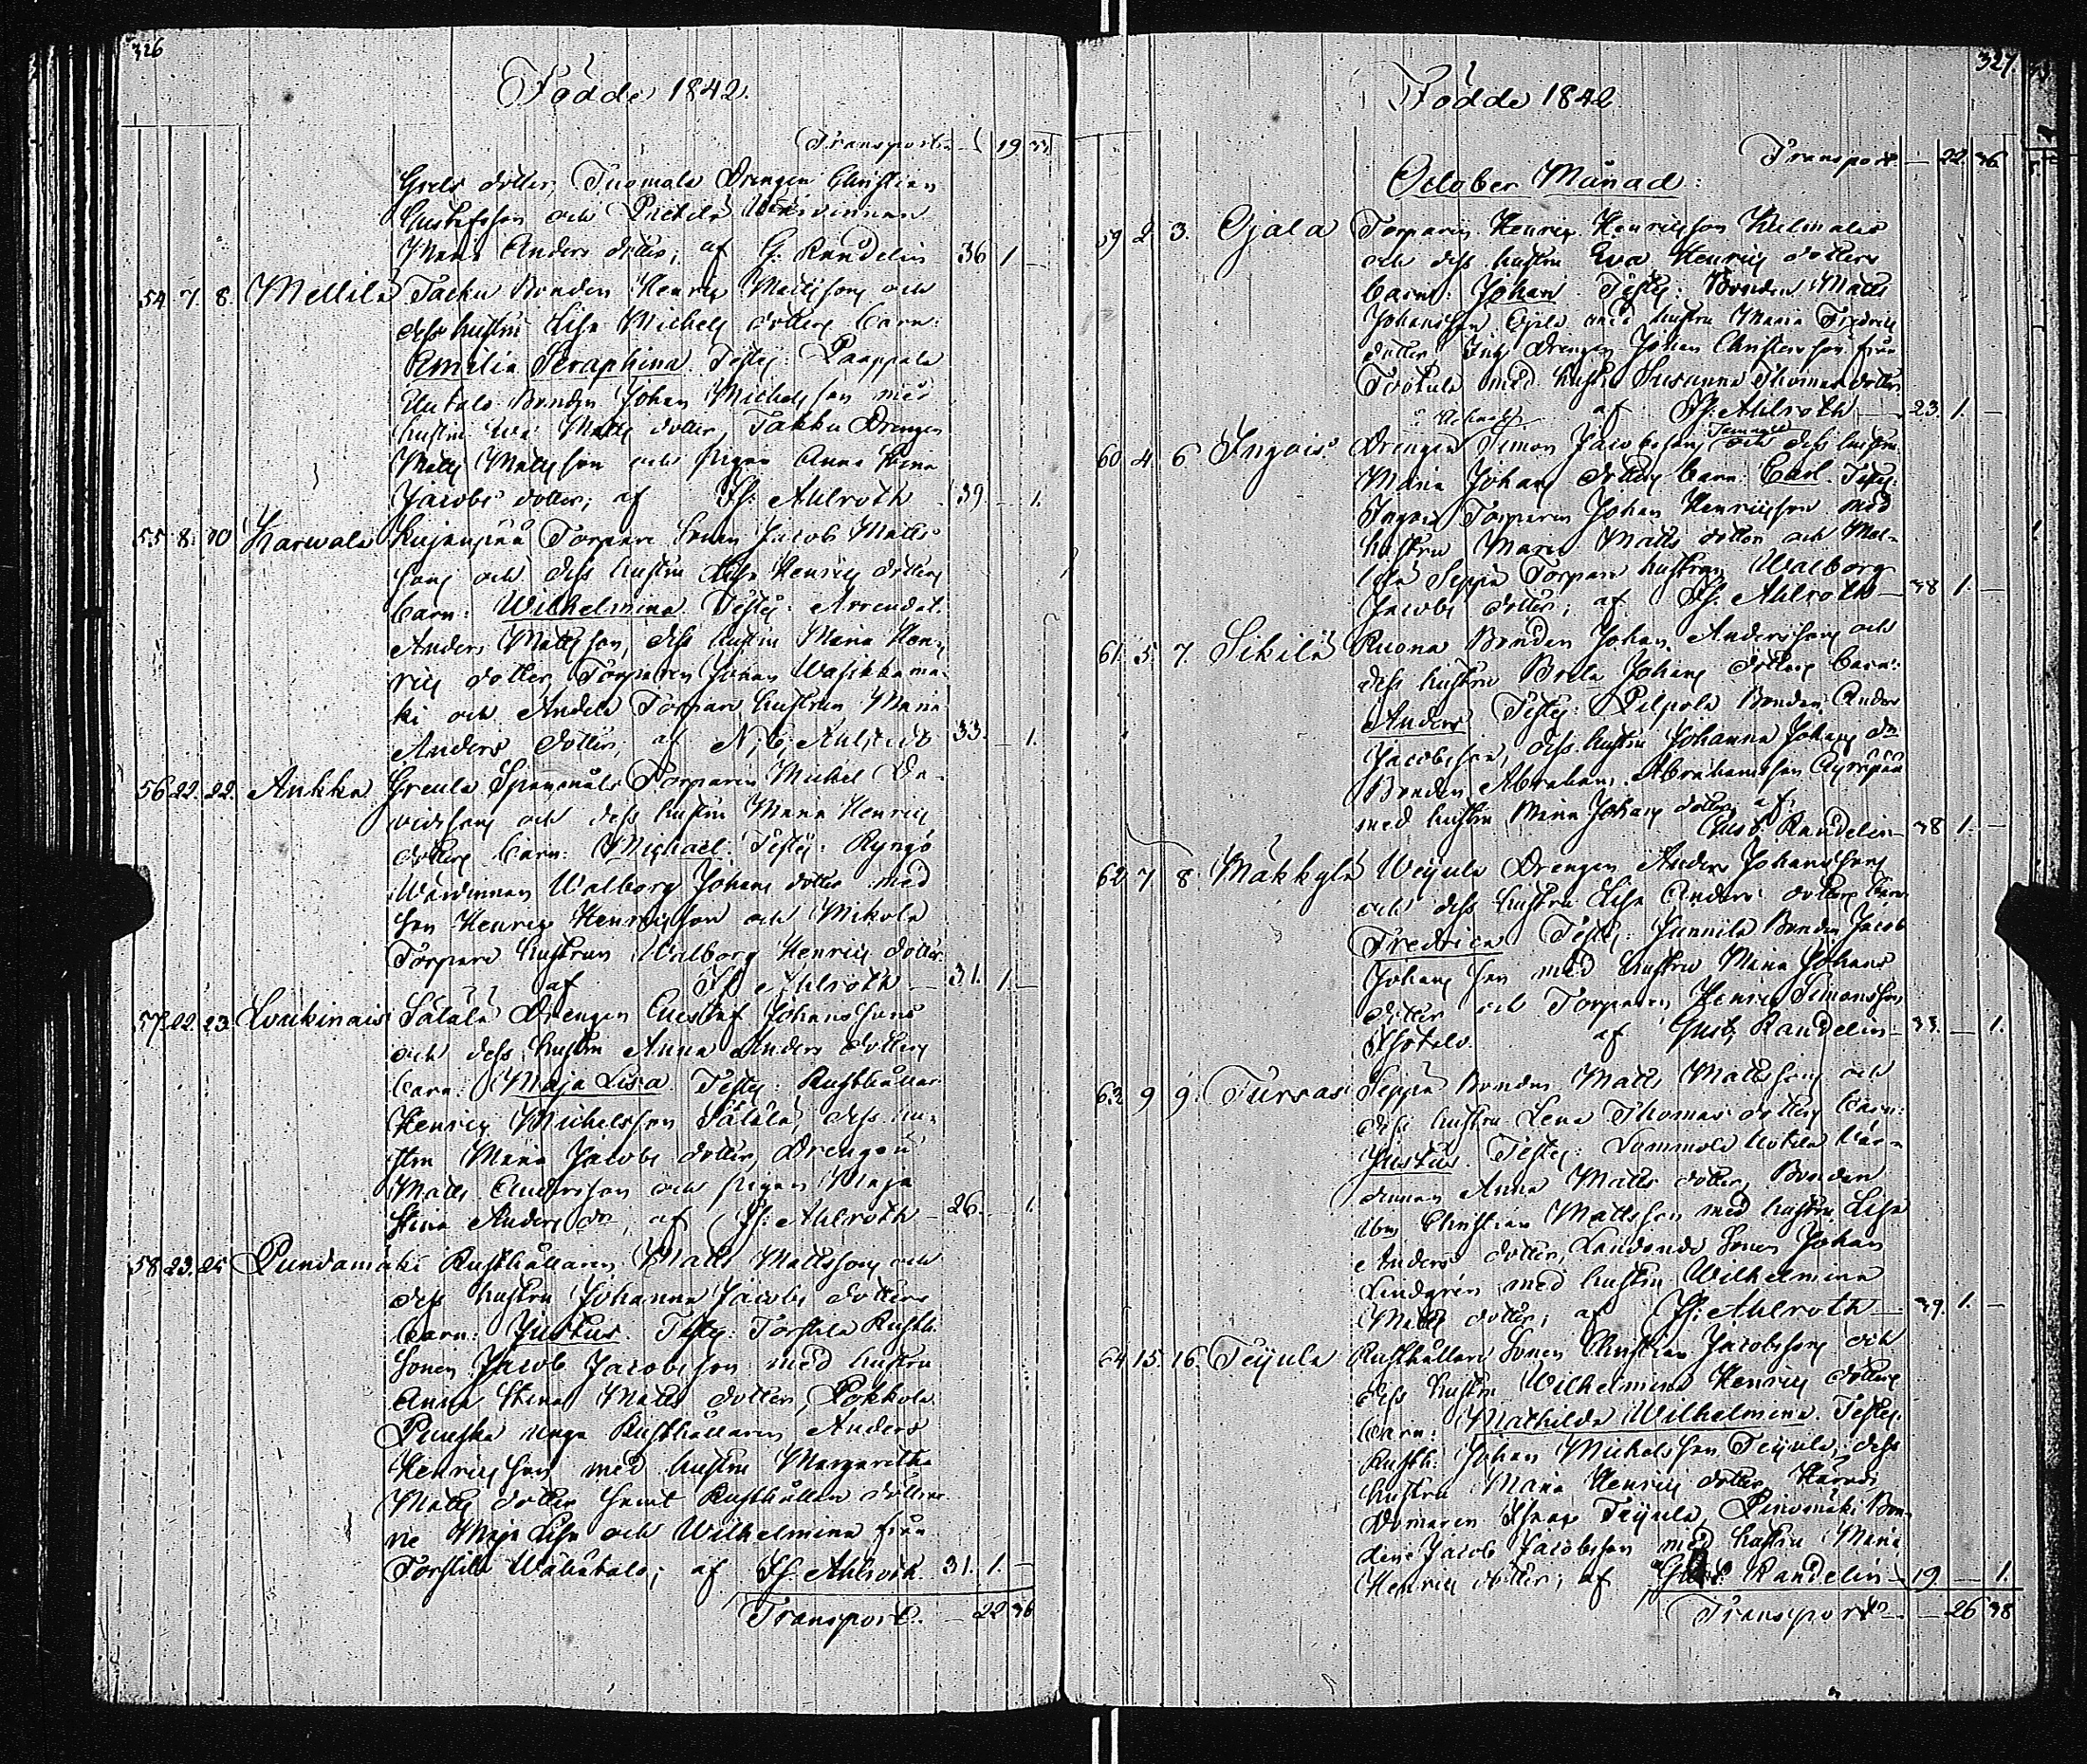 326
Födde 1842.
Transport 19
Grels dotter, Tuomola Drengen Christian
Gustafsson och
Maria Anders dotter, af G: Randelin 36 1 –
54. 7. 8. Mellilä Tacku Bonden Henric Mattsson och
dess hustru Lisa Michels dotters barn:
Amalia Seraphina. Test: Paappala
Bonden Johan Michelsson med
hustru Eva Matts dotter, Takku Drengen
Matts Mattsson och pigan Anna Stina
Jacobs dotter; af Fr: Ahlroth 39 – 1.
55. 8. 10 Karwala Kujanpää Torpare Sonen Jacob Matts-
sons och dess hustru Lisa Henrics dotters
barn: Wilhelmina. Test: Arrendat.
Anders Mattsson, dess hustru Maria Hen-
rics dotter, Torparen Johan Wasikkamä-
ki och Andela Torpare hustrun Maria
Anders dotter, af N, E, Ahlstedt 33. – 1.
56 22. 22. Ankka Greula Spannmåls Torparen Michel Da-
vidsons och dess hustru Maria Henrics
dotters barn: Michael. Test: Ryngö
Wärdinnan Walborg Johans dotter med
son Henric Henricsson och Mikola
Torpare hustrun Walborg Henrics dotter
af Fr Ahlroth – 31. 1. –
57. 22. 23. Loukinais Sälälä Drengen Gustaf Johanssons
och dess hustru Anna Anders dotters
barn: Maja Lisa. Test: Rusthållar
Henric Michelsson Sälälä, dess hu-
stru Maria Jacobs dotter, Drengen
Matts Andersson och pigan Maja
Stina Anders dr, af Fr: Ahlroth – 26. – 1.
58 23. 25 Pundamäki Rusthållaren Matts Mattssons och
dess hustru Johanna Jacobs dotters
barn: Justus. Test: Torstila Rusth:
Sonen Jacob Jacobsson med hustru
Anna Stina Matts dotter, Pokkola
unga Rusthållaren Anders
Henricsson med hustru Margaretha
Matts dotter samt Rusthållare döttrar-
ne Maja Lisa och Wilhelmina från
Torstila Wähätalo; af Fr Ahlroth 31. 1. –
Transport. – 22 36
327
Födde 1842
Transport – 22. 36
October Månad:
59 2. 3. Ojala Torparen Henric Henricsson
och dess hustru Eva Henrics dotters
barn: Johan. Test: Bonden Matts
Johansson Ojala med hustru Maria Fredrics
dotter, Drengen Johan Christersson från
Tootula med hustru Susanna Thomas dotter
af Fr: Ahlroth – 23. 1. –
60. 4. 6 Ingois Drengen Simon Jacobssons och dess hustru
Maria Johans dotters barn: Carl. Test:
Ingois Torparen Johan Henricsson med
hustru Maria Matts dotter och Mel-
lilä Seppä Torpare hustrun Walborg
Jacobs dotter; af Fr: Ahlroth – 38 1. –
61. 5. 7. Sikilä Ruona Bonden Johan Anderssons och
dess hustru Brita Johans dotters barn:
Anders Test: Pilpola Bonden Anders
Jacobsson, dess hustru Johanna Johans dr
Bonden Abraham Abrahamsson Äyräpää
med hustru Maria Johans dotter, af
Gust. Randelin – 38 1. –
62 7. 8. Mäkkylä Weijula Drengen Anders Johanssons
och dess hustru Lisa Anders dotters barn
Fredrica Test: Junnila Bonden Jacob
Johansson med hustru Maria Johans
dotter och Torparen Henric Simonsson
Isotalo. af Gust. Randelin – 33. – 1.
63. 9 9. Tursas Seppä Bonden Matts Mattssons och
dess hustru Lena Thomas dotters barn:
Justus. Test: Lammola Uotila Wär-
dinnan Anna Matts dotter, Bonden
Christian Mattsson med hustru Lisa
Anders dotter, Landbonde Sonen Johan
Lindgrén med hustru Wilhelmina
Matts dotter; af Fr: Ahlroth – 39. 1. –
64 15. 16. Teijula Rusthållare Sonen Christian Jacobssons och
dess hustru Wilhelmina Henrics dotters
barn: Mathilda Wilhelmina. Test:
Rusth: Johan Michelsson Teijula, dess
hustru Maria Henrics dotter, Härads
Domaren Isaac Teijula, Pinomäki Bon-
den Jacob Jacobsson med hustru Maria
Henrics dotter; af Gust. Randelin – 19. – 1.
Transport – 26 38